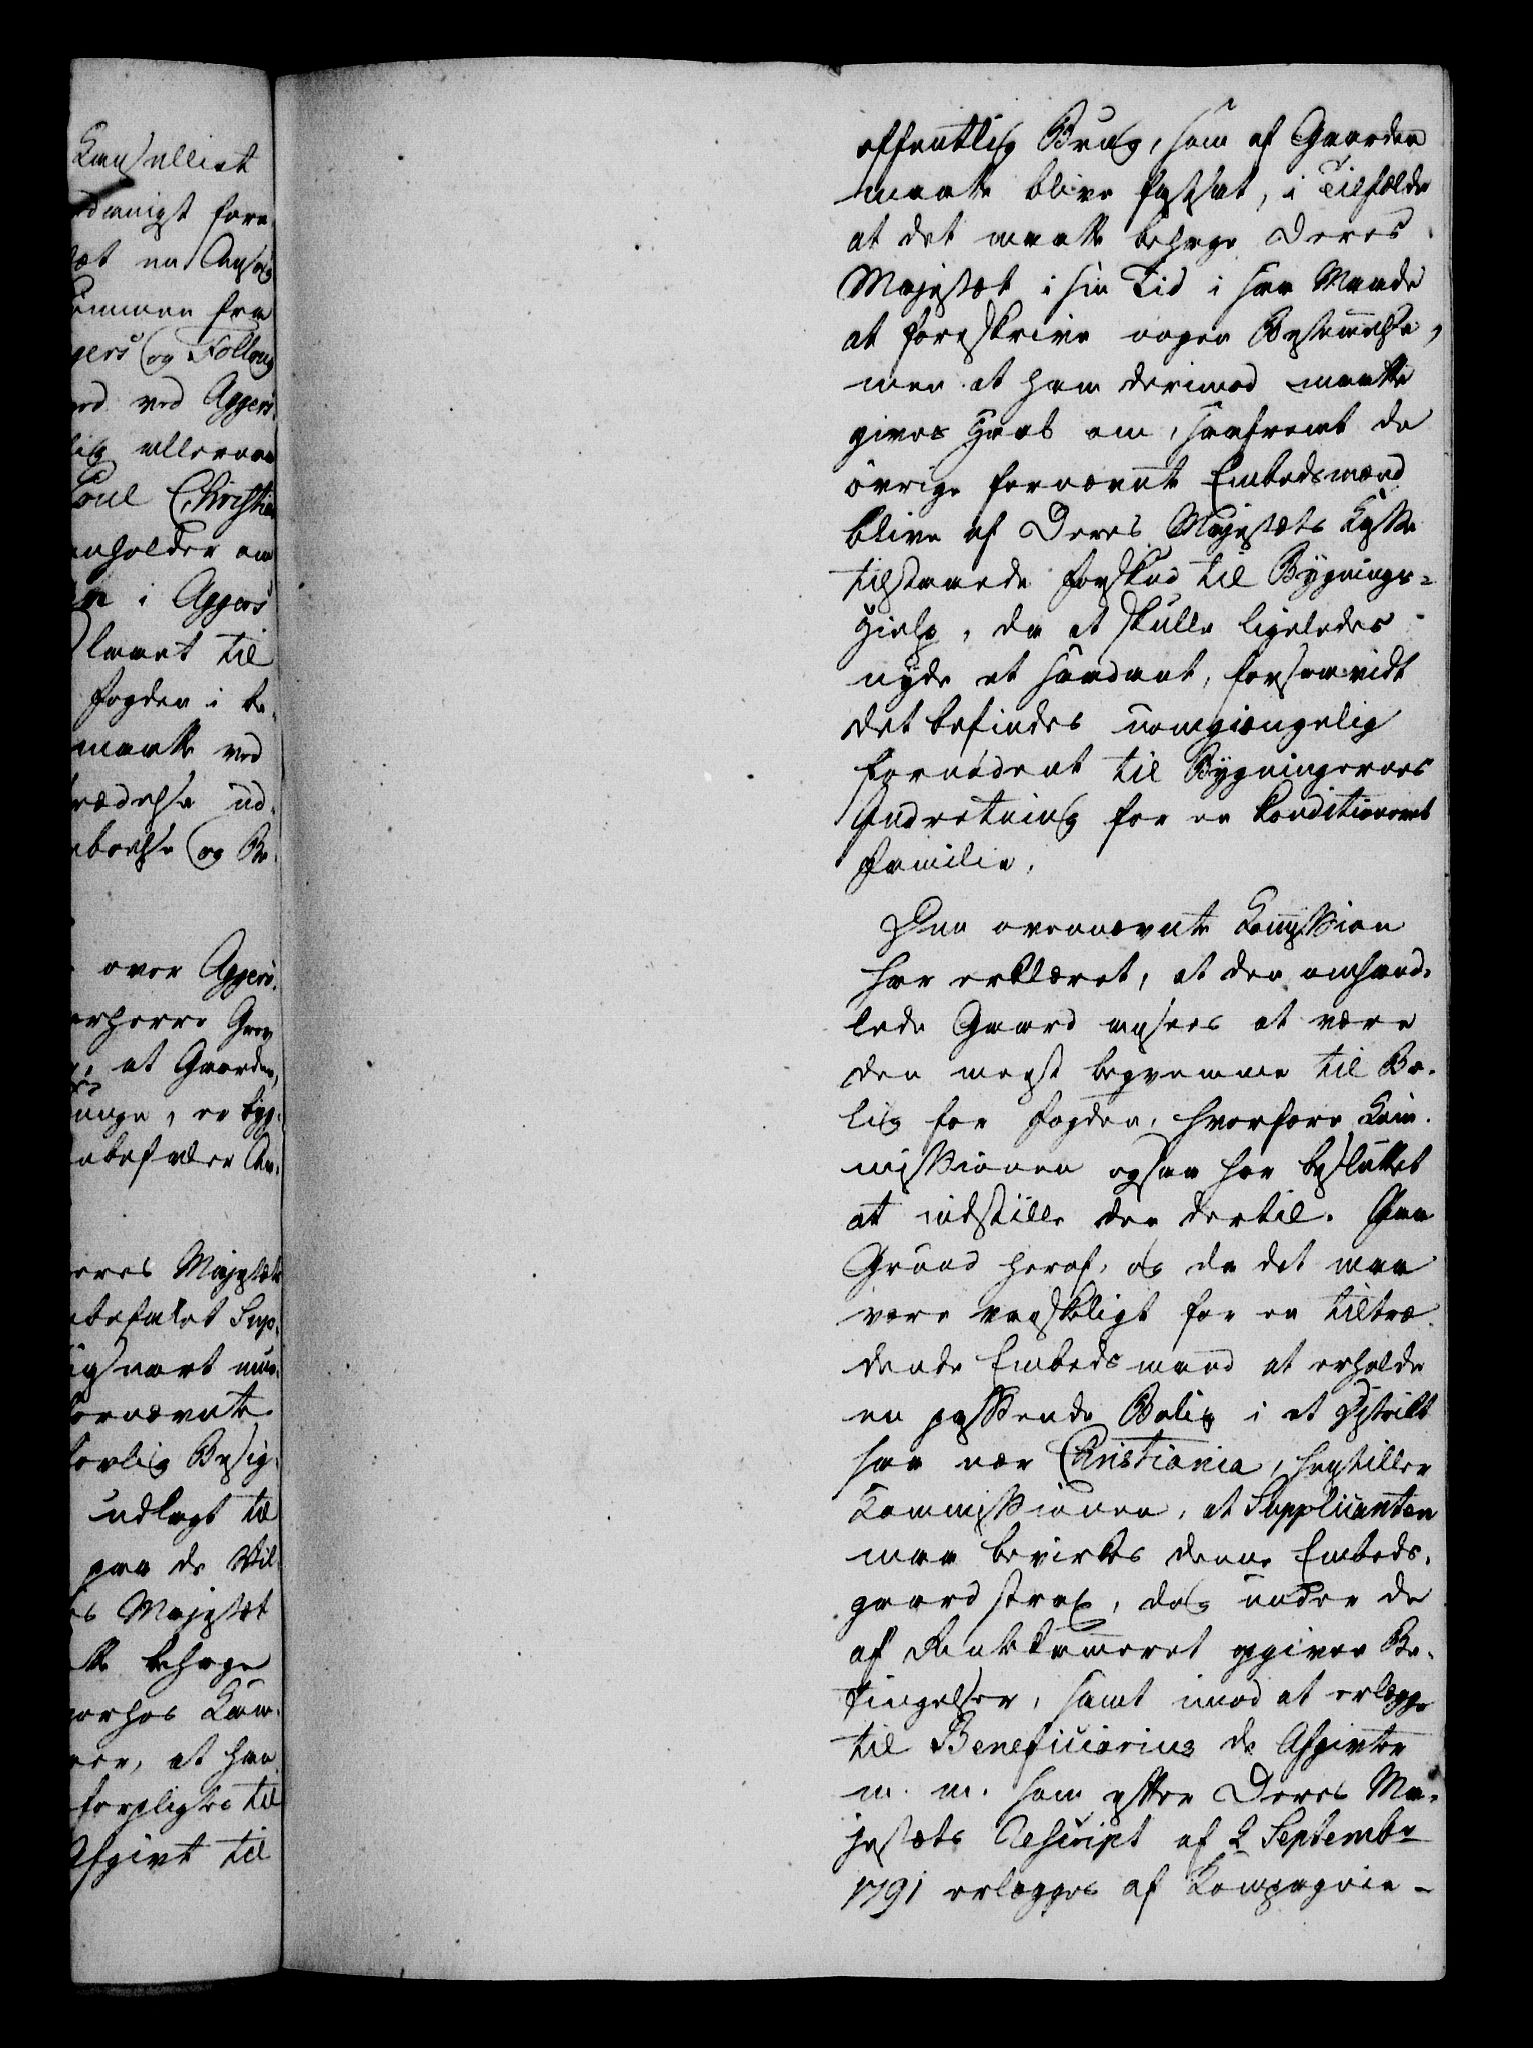 Kancelliet
danigst fore,
at en Ansøg
kommen fra
gers og Folloug
ved Aggers
lig allerna
Poul Christia
nholder om
i Aggers
laaet til
Fogden i be,
maatte ved
trædelse ud,
boelse og Be,
over Aggers,
erherre Grev
, at Gaarden,
unge, er byg,
nbefaler An,
eres Majestæt
befalet Sup,
snart mue,
fornævnte
lovlig Besig,
udlagt til
paa de Vil
s Majestæt
tte behage
erhos Kam,
rer, at han
forpligtes til
Afgivt til
offentlig Brug, som af Gaarden
maatte blive fastsat, i Tilfælde
at det maatte behage Deres
Majestæt i sin Tid i saa Maade
at foreskrive nogen Bestemmelse,
men at ham derimod maatte
gives Haab om, saafremt de
øvrige fornævnte Embedsmænd
blive af Deres Majestæts Kasse
tilstaaede Forskud til Bygnings-
Hielp, da at skulle ligeledes
nyde et saadant, forsaavidt
det befindes uomgiængelig
fornødent til Bygningernes
Indretning for en konditioneret
Familie.
Den ovennævnte Kommission
har erklæret, at den omhand,
lede Gaard ansees at være
den meest beqvemme til Bo,
lig for Fogden, hvorfore Kom,
missionen ogsaa har besluttet
at indstille den dertil. Paa
Grund heraf, og da det maa
være vanskeligt for en tiltræ,
dende Embedsmand at erholde
en passende Bolig i et Distrikt
saa nær Christiania, henstiller
Kommissionen, at Supplicanten
maa bevirkes denne Embeds,
gaard strax, dog under de
af Rentekammeret opgivne Be,
tingelser, samt imod at erlægge
til Beneficiarius de Afgivter
m. m. som efter Deres Ma,
jestæts Rescript af 2 Septembr
1791 erlægges af Kompagnie-